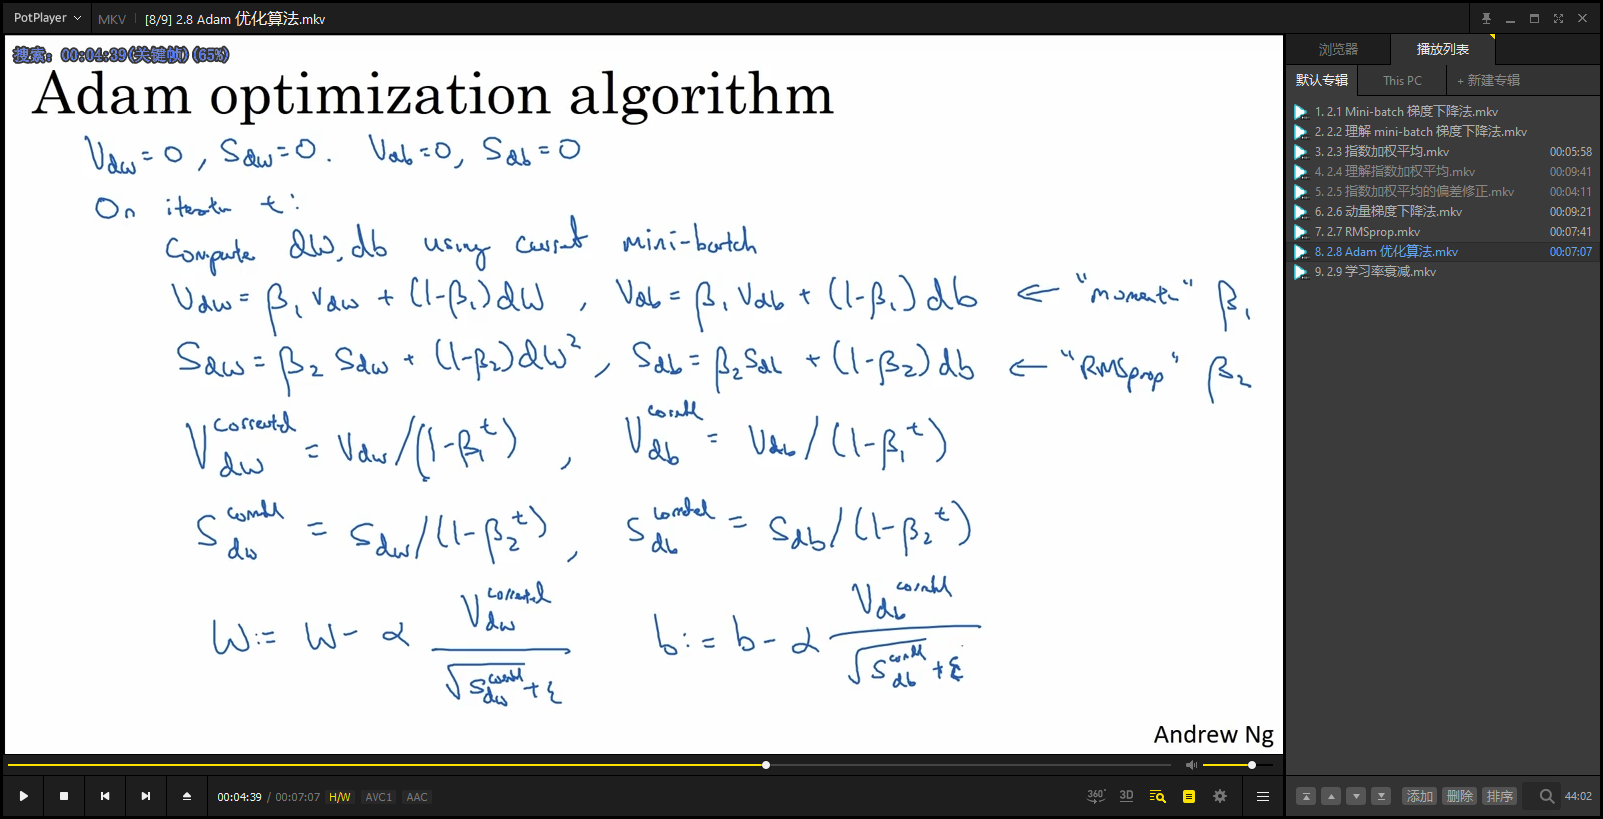 PotPlayer MKV [8/9] 2.8 Adam 优化算法.mkv
搜索: 00:04:39(关键帧) (65%)
Adam optimization algorithm
V_dw = 0, S_dw = 0. V_db = 0, S_db = 0
On iteratn t:
Compute dW, db using current mini-batch
V_dw = β₁ V_dw + (1-β₁) dW, V_db = β₁ V_db + (1-β₁) db ← "moment" β₁
S_dw = β₂ S_dw + (1-β₂) dW², S_db = β₂ S_db + (1-β₂) db ← "RMSprop" β₂
V_dw^corrected = V_dw/(1-β₁^t), V_db^corrected = V_db/(1-β₁^t)
S_dw^corrected = S_dw/(1-β₂^t), S_db^corrected = S_db/(1-β₂^t)
W := W - α V_dw^corrected / √S_dw^corrected + ε b := b - α V_db^corrected / √S_db^corrected + ε
Andrew Ng
00:04:39 / 00:07:07 H/W AVC1 AAC
360° 3D
浏览器 播放列表
默认专辑 This PC + 新建专辑
1. 2.1 Mini-batch 梯度下降法.mkv
2. 2.2 理解 mini-batch 梯度下降法.mkv
3. 2.3 指数加权平均.mkv 00:05:58
4. 2.4 理解指数加权平均.mkv 00:09:41
5. 2.5 指数加权平均的偏差修正.mkv 00:04:11
6. 2.6 动量梯度下降法.mkv 00:09:21
7. 2.7 RMSprop.mkv 00:07:41
8. 2.8 Adam 优化算法.mkv 00:07:07
9. 2.9 学习率衰减.mkv
添加 删除 排序 44:02